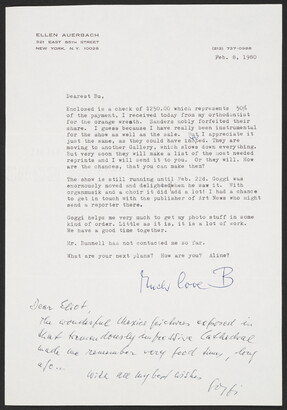 ELLEN AUERBACH
231 EAST 85TH STREET
NEW YORK, N.Y. 10028
(212) 737-0968
Feb. 8, 1980
Dearest Bu,
Enclosed is a check of $250.00 which represents 50%
of the payment. I received today from my orthodontist
for the orange wreath. Sanders nobly forfeited their
share. I guess because I have really been instrumental
for the show as well as the sale. But I appreciate it
just the same, as they could have They are
moving to another Gallery, which slows down everything.
But very soon they will make a list of the most needed
reprints and I will send it to you. Or they will. How
are the chances, that you can make them?
The show is still running until Feb. 22d. Goggi was
enormously moved and delighted when he saw it. With
organmusik and a choir it did add a lot! I had a chance
to get in touch with the publisher of Art News who might
send a reporter there.
Goggi helps me very much to get my photo stuff in some
kind of order. Little as it is, it is a lot of work.
We have a good time together.
Mr. Dammell has not contacted me so far.
What are your next plans? How are you? Aline?
Much love B
Dear Eliot,
the wonderful Mexico pictures exposed in
that tremendously impressive Cathedral
made me remember very good times, long
ago...
With all my best wishes
Goggi